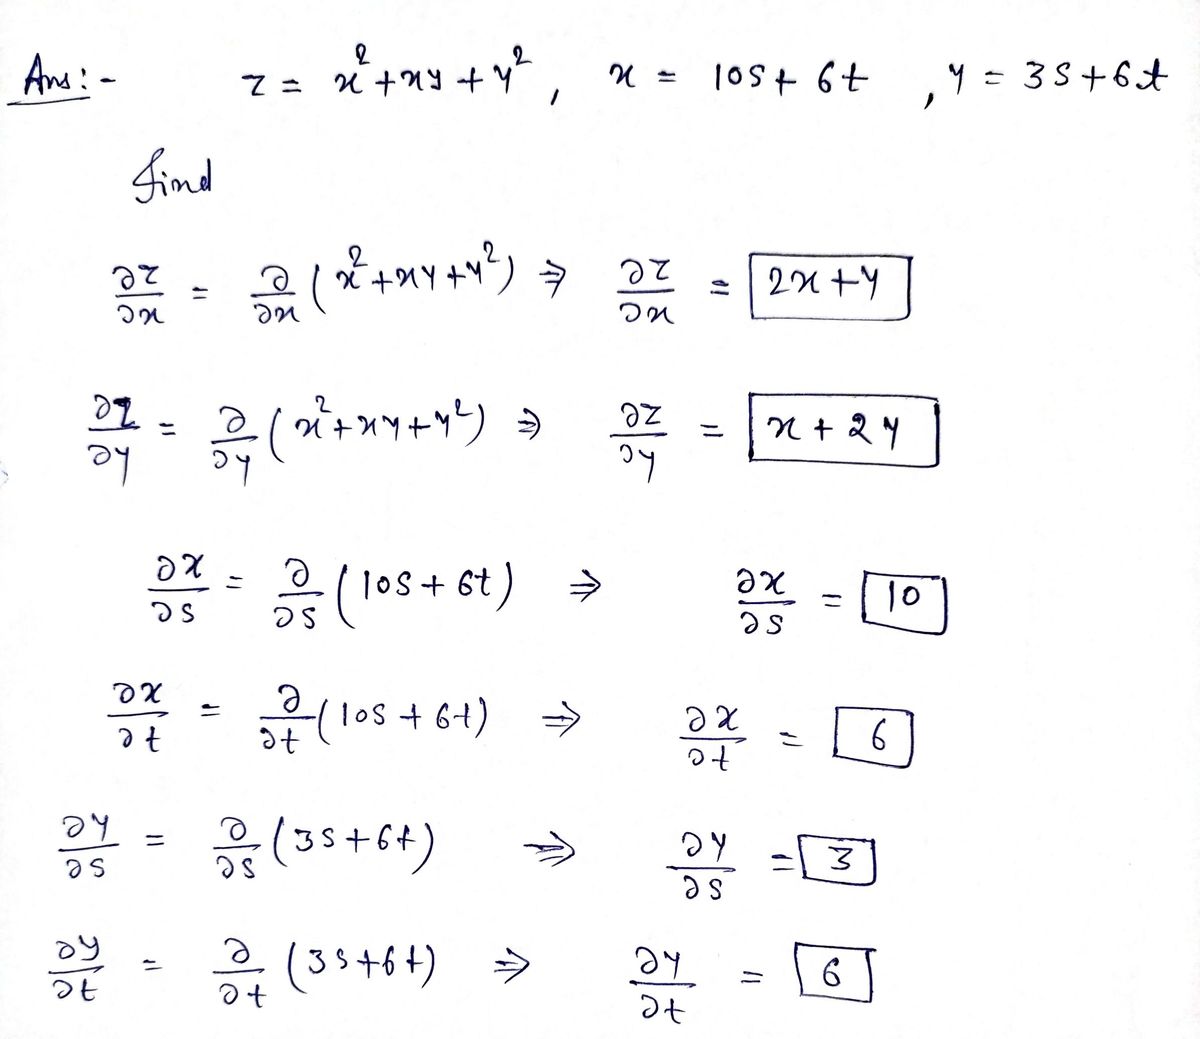 Ans:- z = x² + xy + y², x = 10s + 6t, y = 3s + 6t
find
∂z/∂x = ∂/∂x (x² + xy + y²) ⇒ ∂z/∂x = 2x + y
∂z/∂y = ∂/∂y (x² + xy + y²) ⇒ ∂z/∂y = x + 2y
∂x/∂s = ∂/∂s (10s + 6t) ⇒ ∂x/∂s = 10
∂x/∂t = ∂/∂t (10s + 6t) ⇒ ∂x/∂t = 6
∂y/∂s = ∂/∂s (3s + 6t) ⇒ ∂y/∂s = 3
∂y/∂t = ∂/∂t (3s + 6t) ⇒ ∂y/∂t = 6